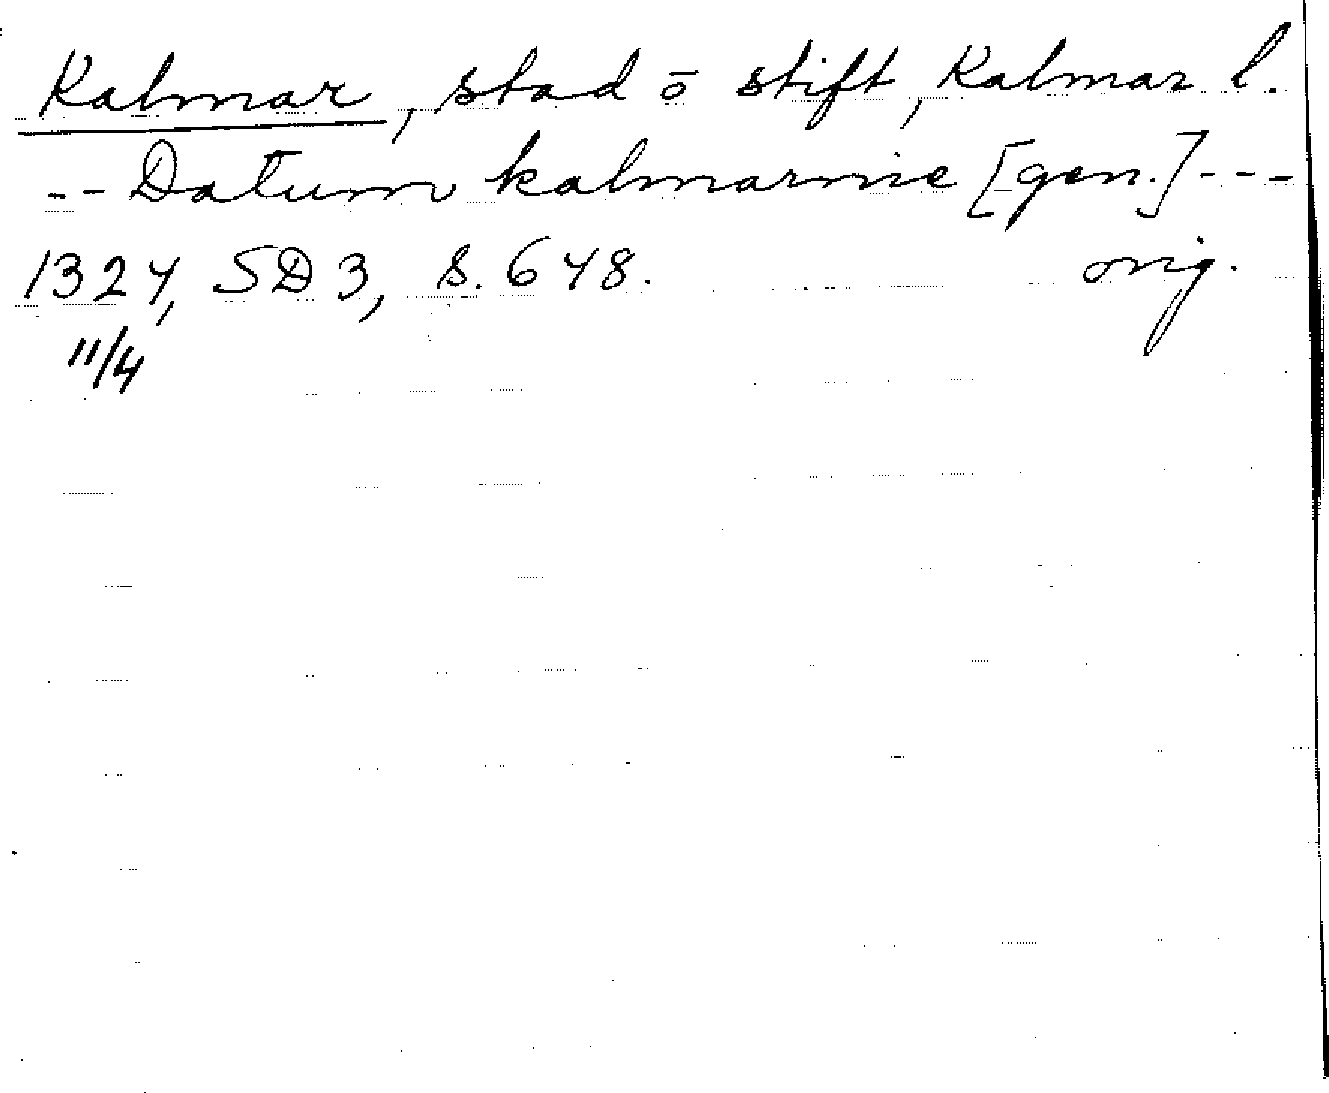 Kalmar, stad o stift, Kalmar l.
-- Datum kalmarnie [gen.] ---
1324, SD 3, s. 648. orig.
11/4